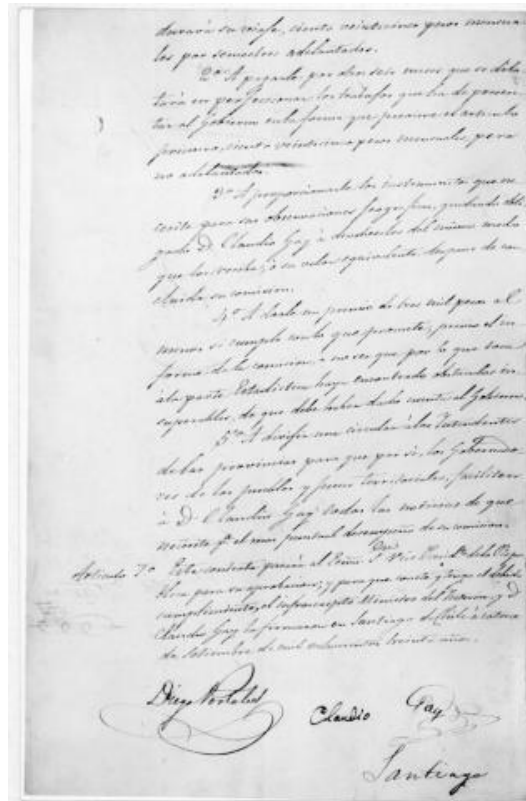 durará su viaje, ciento veinticinco pesos mensua-
les por semestres adelantados.
2º A pagarle por dos seis meses que se dila-
tará en perfeccionar los trabajos que ha de presen-
tar al Gobierno en la forma que previene el artículo
primero, ciento veinticinco pesos mensuales, pero
no adelantados.
3º A proporcionarle los instrumentos que ne-
cesite para sus observaciones geograficas, quedando obli-
gado D. Claudio Gay á devolverlos del mismo modo
que los recibe, ó su valor equivalente despues de con-
cluida su comision.
4º A darle un premio de tres mil pesos al
menos si cumple con lo que promete, previo el in-
forme de la comision, a no ser que por lo que toca
á la parte Estadistica haya encontrado obstaculos in-
superables, de que debe haber dado cuenta al Gobierno.
5º A dirigir una circular á los Intendentes
de las provincias para que por sí, los Gobernado-
res de los pueblos y jueces territoriales, faciliten
á D. Claudio Gay todas las noticias que
necesite pª el mas puntual desempeño de su comision.
Articulo 7º Esta contrata pasará al Exmo. S. Vice Presidte de la Repu-
blica para su aprobacion; y para que conste y tenga el debido
cumplimiento, el infrascripto Ministro del Interior y D.
Claudio Gay la firmaron en Santiago de Chile á catorce
de Setiembre de mil ochocientos treinta años.
Diego Portales
Claudio Gay
Santiago